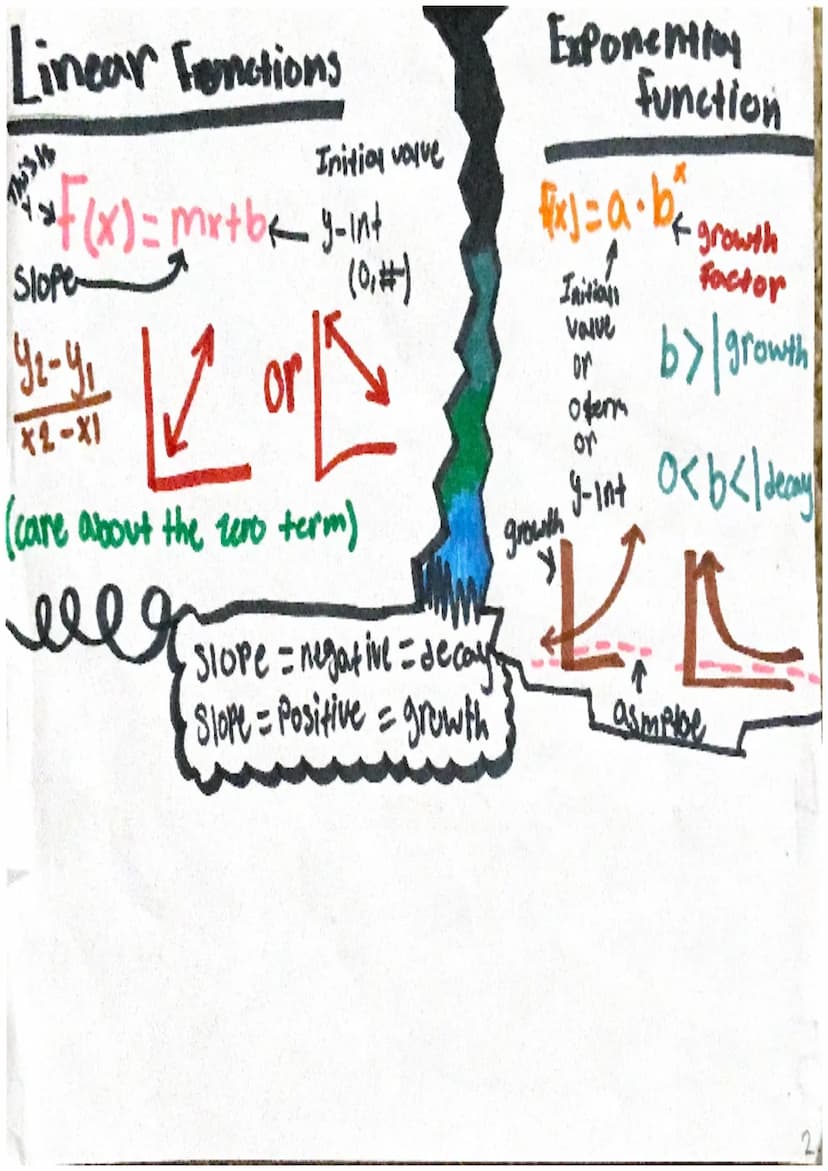 Linear Functions
This is
y
F(x) = mx+b
Initial value
y-int
(0,#)
Slope
y2-y1
x2-x1
or
(care about the zero term)
Slope = negative = decay
Slope = Positive = growth
Exponential
Function
f(x) = a · b^x
growth
factor
Initial
value
or
0term
or
y-int
b>1 growth
0<b<1 decay
growth
2